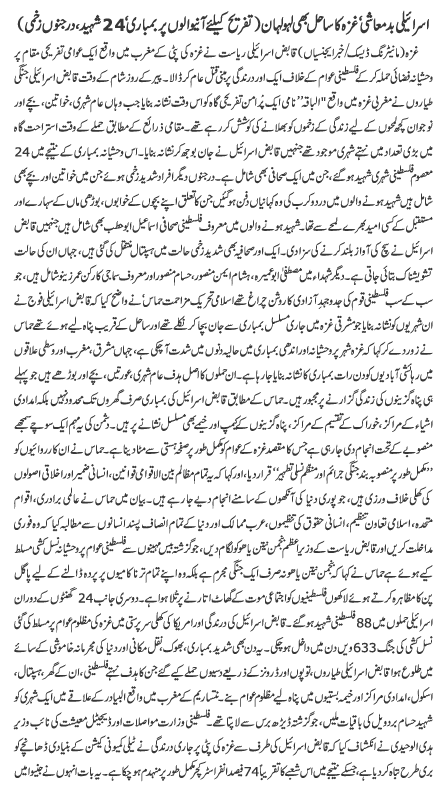 اسرائیلی بدمعاشی‘ غزہ کا ساحل بھی لہولہان (تفریح کیلئے آنیوالوں پر بمباری‘ 24 شہید، درجنوں زخمی)
غزہ (مانیٹرنگ ڈیسک/ خبر ایجنسیاں) قابض اسرائیلی ریاست نے غزہ کی پٹی کے مغرب میں واقع ایک عوامی تفریحی مقام پر
وحشیانہ فضائی حملہ کرکے فلسطینی عوام کے خلاف ایک اور درندگی پر مبنی قتل عام کر ڈالا۔ پیر کے روز شام کے وقت اسرائیلی جنگی
طیاروں نے مغربی غزہ میں واقع ’’الباقہ‘‘ نامی ایک پرامن تفریحی گاہ کو اس وقت نشانہ بنایا جب وہاں عام شہری، خواتین، بچے اور
نوجوان کچھ لمحوں کے لیے زندگی کے زخموں کو بھلانے کی کوشش کر رہے تھے۔ مقامی ذرائع کے مطابق حملے کے وقت استراحت گاہ
میں بڑی تعداد میں نہتے شہری موجود تھے جنہیں قابض اسرائیل نے جان بوجھ کر نشانہ بنایا۔ اس وحشیانہ بمباری کے نتیجے میں 24
معصوم فلسطینی شہری شہید ہو گئے، جن میں ایک صحافی بھی شامل ہے۔ درجنوں دیگر افراد شدید زخمی ہوئے جن میں خواتین اور بچے بھی
شامل ہیں شہید ہونے والوں میں درد و کرب کی وہ کہانیاں دفن ہو گئیں جن کا تعلق اپنے بچوں کے خوابوں، بوڑھی ماں کے سہارے اور
مستقبل کے کسی امید بھرے لمحے سے تھا۔ شہید ہونے والوں میں معروف فلسطینی صحافی اسماعیل ابوحطب بھی شامل ہیں جنہیں قابض
اسرائیل نے سچ کی آواز بلند کرنے کی سزا دی۔ ایک اور صحافیہ بھی شدید زخمی حالت میں ہسپتال منتقل کی گئی ہیں، جہاں ان کی حالت
تشویشناک بتائی جاتی ہے۔ دیگر شہداء میں مصطفیٰ ابوعمیرہ، ہشام ایمن منصور، حسام منصور اور معروف سماجی کارکن عمر زینو شامل ہیں، جو
سب کے سب فلسطینی قوم کی جدوجہد آزادی کا روشن چراغ تھے اسلامی تحریک مزاحمت حماس نے واضح کیا کہ قابض اسرائیلی فوج نے
ان شہریوں کو نشانہ بنایا جو مشرقی غزہ میں جاری مسلسل بمباری سے جان بچا کر نکلے تھے اور ساحل کے قریب پناہ لیے ہوئے تھے حماس
نے زور دے کر کہا کہ غزہ شہر پر وحشیانہ اور اندھی بمباری میں حالیہ دنوں میں شدت آچکی ہے، جہاں مشرقی، مغربی اور وسطی علاقوں
میں رہائشی آبادیوں کو دن رات بمباری کا نشانہ بنایا جا رہا ہے۔ ان حملوں کا اصل ہدف عام شہری، عورتیں، بچے اور بوڑھے ہیں جو پہلے
ہی پناہ گزینوں کی زندگی گزارنے پر مجبور ہیں۔ حماس کے مطابق قابض اسرائیل کی بمباری صرف گھروں تک محدود نہیں بلکہ امدادی
اشیاء کے مراکز، خوراک کے تقسیم کے مراکز، پناہ گزینوں کے کیمپ اور خیمے بھی مسلسل نشانے پر ہیں۔ دشمن کی یہ مہم ایک سوچے سمجھے
منصوبے کے تحت انجام دی جا رہی ہے جس کا مقصد غزہ کے عوام کو مکمل طور پر صفحہ ہستی سے مٹا دینا ہے۔ حماس نے ان کارروائیوں کو
’’مکمل طور پر منصوبہ بند جنگی جرائم اور منظم نسلی تطہیر‘‘ قرار دیا، اور کہا کہ یہ تمام مظالم بین الاقوامی قوانین، انسانی ضمیر اور اخلاقی اصولوں
کی کھلی خلاف ورزی ہیں، جو پوری دنیا کی آنکھوں کے سامنے انجام دیے جا رہے ہیں۔ بیان میں حماس نے عالمی برادری، اقوام
متحدہ، اسلامی تعاون تنظیم، انسانی حقوق کی تنظیموں، عرب ممالک اور دنیا کے تمام انصاف پسند انسانوں سے مطالبہ کیا کہ وہ فوری
مداخلت کریں اور قابض ریاست کے وزیراعظم بنجمن نیتن یاھو کو لگام دیں، جو گزشتہ بیس مہینوں سے فلسطینی عوام پر وحشیانہ نسل کشی مسلط
کیے ہوئے ہے حماس نے کہا کہ بنجمن نیتن یاھو نہ صرف ایک جنگی مجرم ہے بلکہ وہ اپنے تمام تر ناکامیوں پر پردہ ڈالنے کے لیے پاگل
پن کا مظاہرہ کرتے ہوئے لاکھوں فلسطینیوں کو اجتماعی موت کے گھاٹ اتارنے پر تلا ہوا ہے۔ دوسری جانب 24 گھنٹوں کے دوران
اسرائیلی حملوں میں 88 فلسطینی شہید ہو گئے۔ قابض اسرائیل کی درندگی اور امریکا کی کھلی سرپرستی میں غزہ کی مظلوم عوام پر مسلط کی گئی
نسل کشی کی جنگ 633 ویں دن میں داخل ہو چکی۔ یہ دن بھی شدید بمباری، بھوک، نقل مکانی اور دنیا کی مجرمانہ خاموشی کے سائے
میں طلوع ہوا قابض اسرائیلی طیاروں، توپوں اور ڈرونز کے ذریعے دسیوں حملے کیے گئے جن کا ہدف نہتے فلسطینی، ان کے گھر، ہسپتال،
اسکول، امدادی مراکز اور خیمہ بستیوں میں پناہ لیے مظلوم عوام بنے۔ نتساریم کے مغرب میں واقع المیادر کے علاقے میں ایک شہری کو
شہید حسام بردویل کی باقیات ملیں، جو گزشتہ ڈیڑھ برس سے لاپتا تھے۔ فلسطینی وزارت مواصلات اور ڈیجیٹل معیشت کی نائب وزیر
ہدی الوحیدی نے انکشاف کیا کہ قابض اسرائیل کی طرف سے غزہ کی پٹی پر جاری درندگی نے ٹیلی کمیونی کیشن کے بنیادی ڈھانچے کو
بری طرح تباہ کر دیا ہے، جسکے نتیجے میں اس شعبے کا تقریباً 74 فیصد انفراسٹرکچر مکمل طور پر منہدم ہو چکا ہے۔ یہ بات انہوں نے جنیوا میں